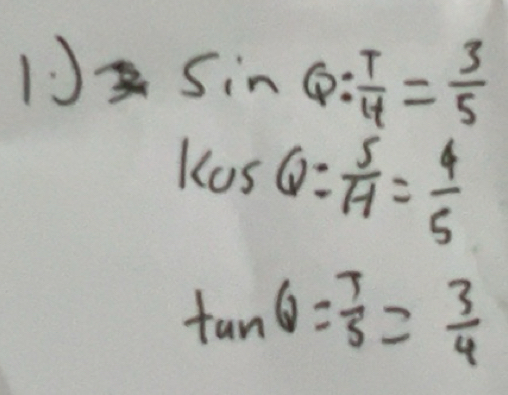 1.) Sin Q: T/H = 3/5
Kos Q = S/H = 4/5
tan Q = T/S = 3/4